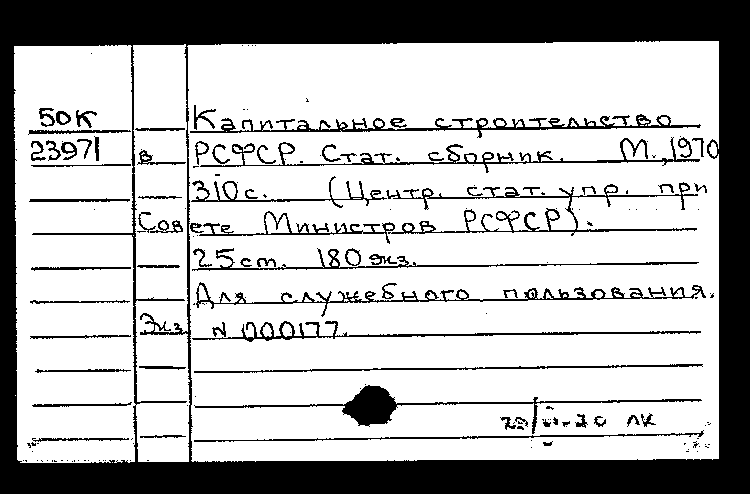 50К Капитальное строительство
23971 в РСФСР. Стат. сборник. М., 1970
310с. (Центр. стат. упр. при
Совете Министров РСФСР).
25cm. 180 экз.
Для служебного пользования.
Экз. N 000177.
ЛК